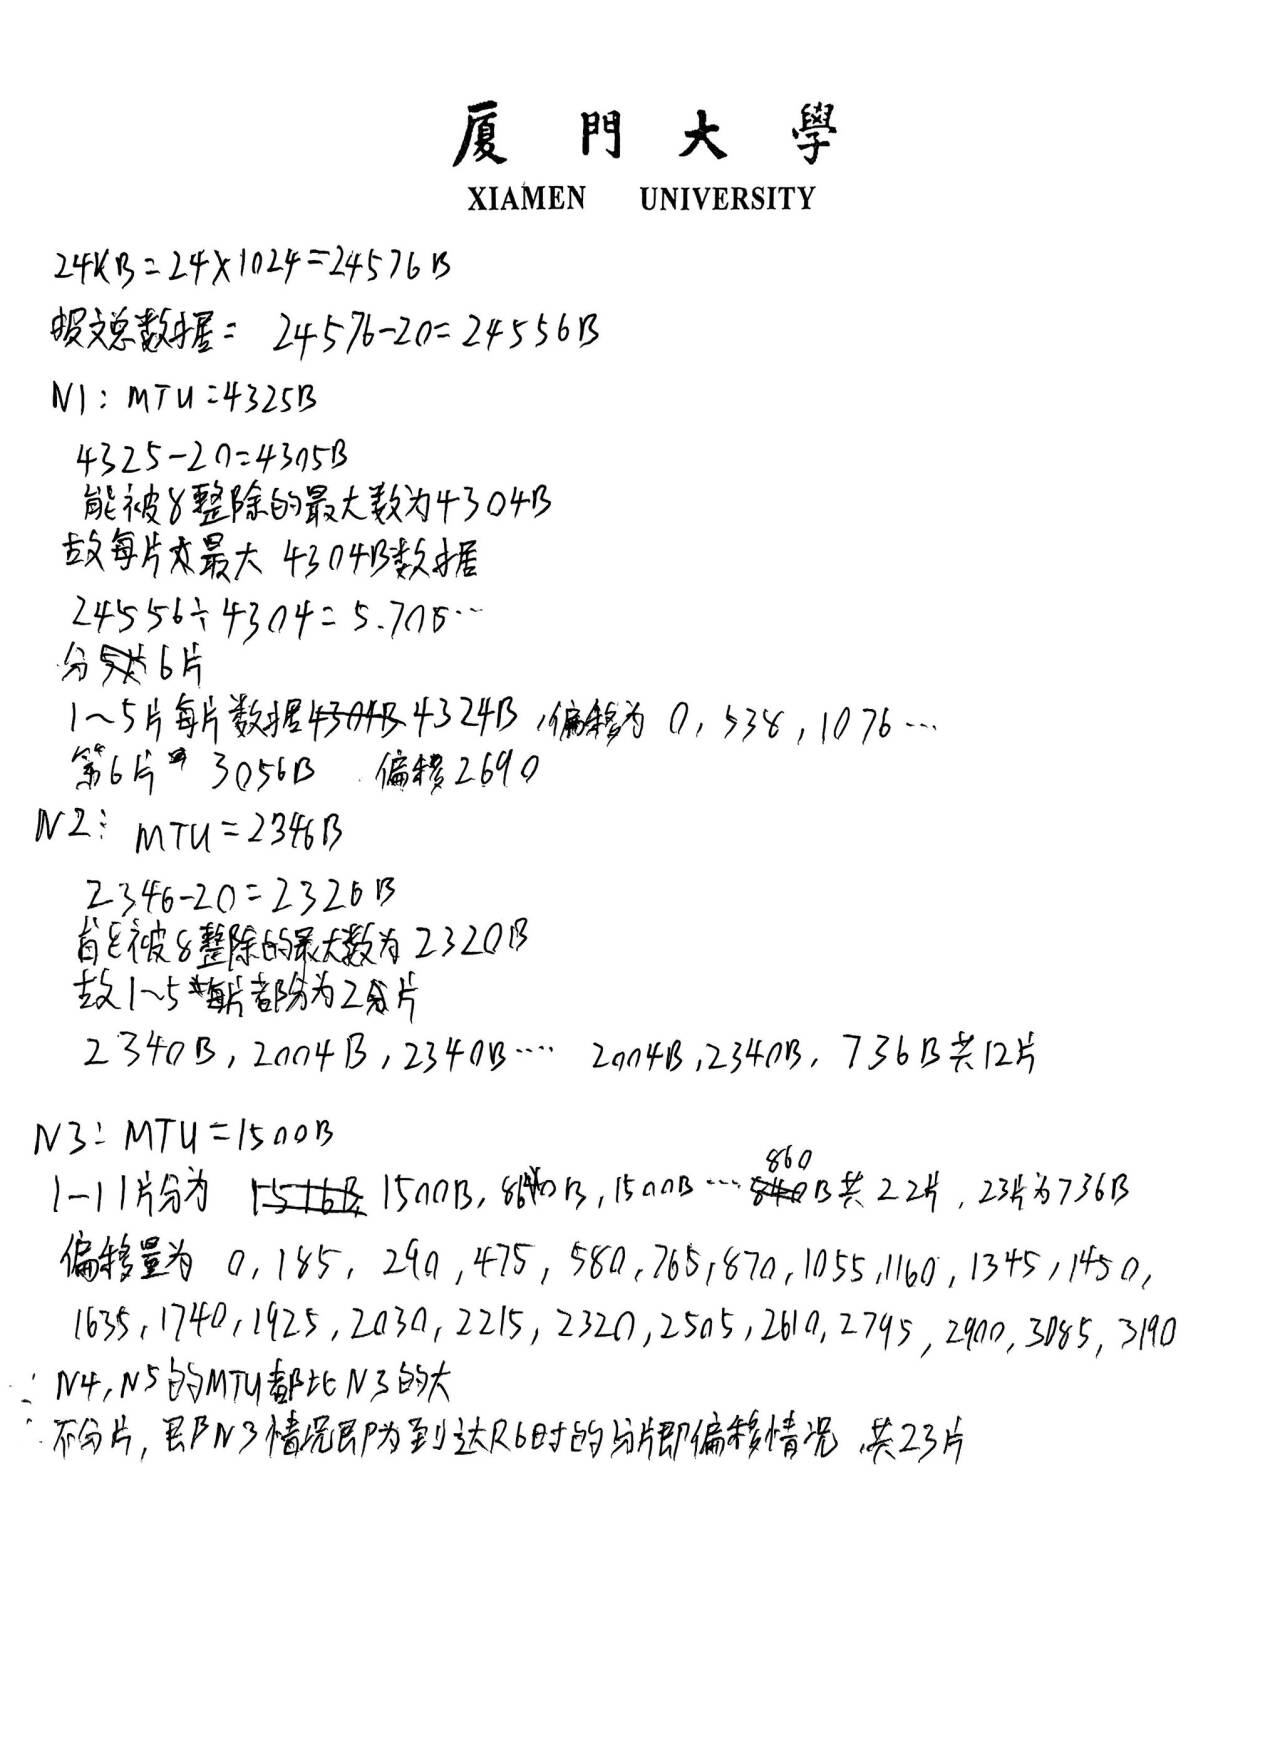 厦門大學
XIAMEN UNIVERSITY
24KB=24×1024=24576B
报文总数据= 24576-20=24556B
N1: MTU=4325B
4325-20=4305B
能被8整除的最大数为4304B
故每片最大 4304B数据
24556÷4304=5.705…
分6片
1~5片每片数据4324B,偏移为 0, 538, 1076…
第6片 3056B 偏移2690
N2: MTU=2346B
2346-20=2326B
能被8整除的最大数为2320B
故1~5每片都分为2分片
2340B, 2004B, 2340B…. 2004B, 2340B, 736B共12片
N3: MTU=1500B
1-11片分为 1500B, 860B, 1500B…860B共22片, 23片为736B
偏移量为 0, 185, 290, 475, 580, 765, 870, 1055, 1160, 1345, 1450,
1635, 1740, 1925, 2030, 2215, 2320, 2505, 2610, 2795, 2900, 3085, 3190
∵N4, N5的MTU都比N3的大
∴不分片, 即N3情况即为到达R6时的分片即偏移情况, 共23片